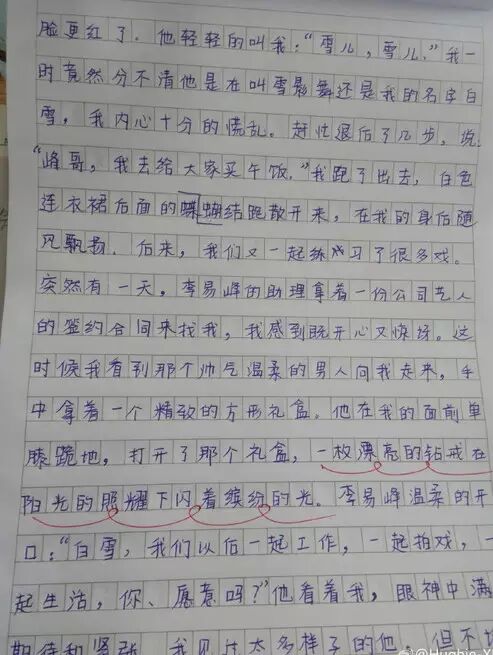 脸更红了。他轻轻的叫我："雪儿，雪儿。"我一
时竟然分不清他是在叫雪影舞还是我的名字白
雪，我内心十分的慌乱。赶忙退后了几步，说：
"峰哥，我去给大家买午饭。"我跑了出去，白色
连衣裙后面的蝴蝶结跑散开来，在我的身后随
风飘扬。后来，我们又一起练习了很多戏。
突然有一天，李易峰的助理拿着一份公司艺人
的签约合同来找我，我感到既开心又惊讶。这
时候我看到那个帅气温柔的男人向我走来，手
中拿着一个精致的方形礼盒。他在我的面前单
膝跪地，打开了那个礼盒，一枚漂亮的钻戒在
阳光的照耀下闪着缤纷的光。李易峰温柔的开
口："白雪，我们以后一起工作，一起拍戏，一
起生活，你、愿意吗？"他看着我，眼神中满
期待和紧张。我见过太多样子的他，但不